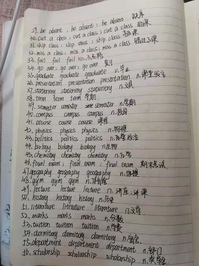 29. be absent; be absent; be absent 缺席
30. cut a class; cut a class; cut a class
31. skip class; skip class; skip class
32. miss a class; miss a class; miss a class
33. fail fail fail
34. go over; go over; go over 复习
35. graduate graduate graduate v.毕业
36. presentation presentation presentation n.
37. stationery stationery stationery n.文具
38. term term term 学期
39. semester semester semester n.学期
40. campus campus campus n.校园
41. course course course 课程
42. physics physics physics n.物理
43. politics politics politics n.
44. biology biology biology n.生物
45. chemistry chemistry chemistry n.化学
46. final exam; final exam; final exam 期末考试
47. geography geography geography n.地理
48. gym gym gym n.
49. lecture lecture lecture n.
50. history history history n.历史
51. literature literature literature n.文学
52. marks marks marks n.分数
53. tuition tuition tuition n.学费
54. dormitory dormitory dormitory n.宿舍
55. department department department n.部门
56. scholarship scholarship scholarship n.奖学金